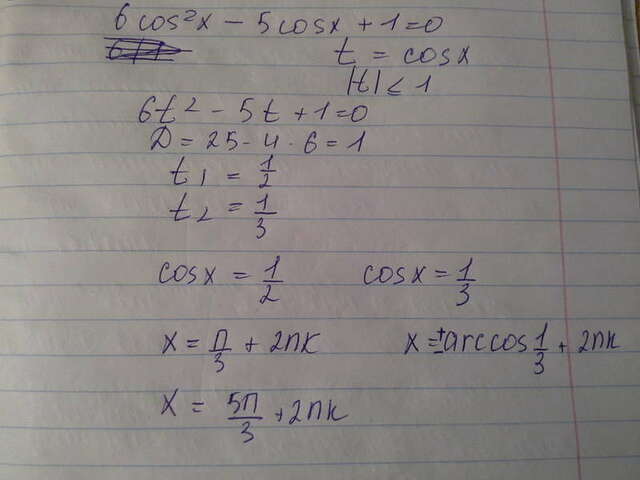 6cos²x - 5cosx + 1 = 0
t = cosx
|t| ≤ 1
6t² - 5t + 1 = 0
D = 25 - 4 · 6 = 1
t1 = 1/2
t2 = 1/3
cosx = 1/2 cosx = 1/3
x = π/3 + 2πk x = ±arccos 1/3 + 2πk
x = 5π/3 + 2πk